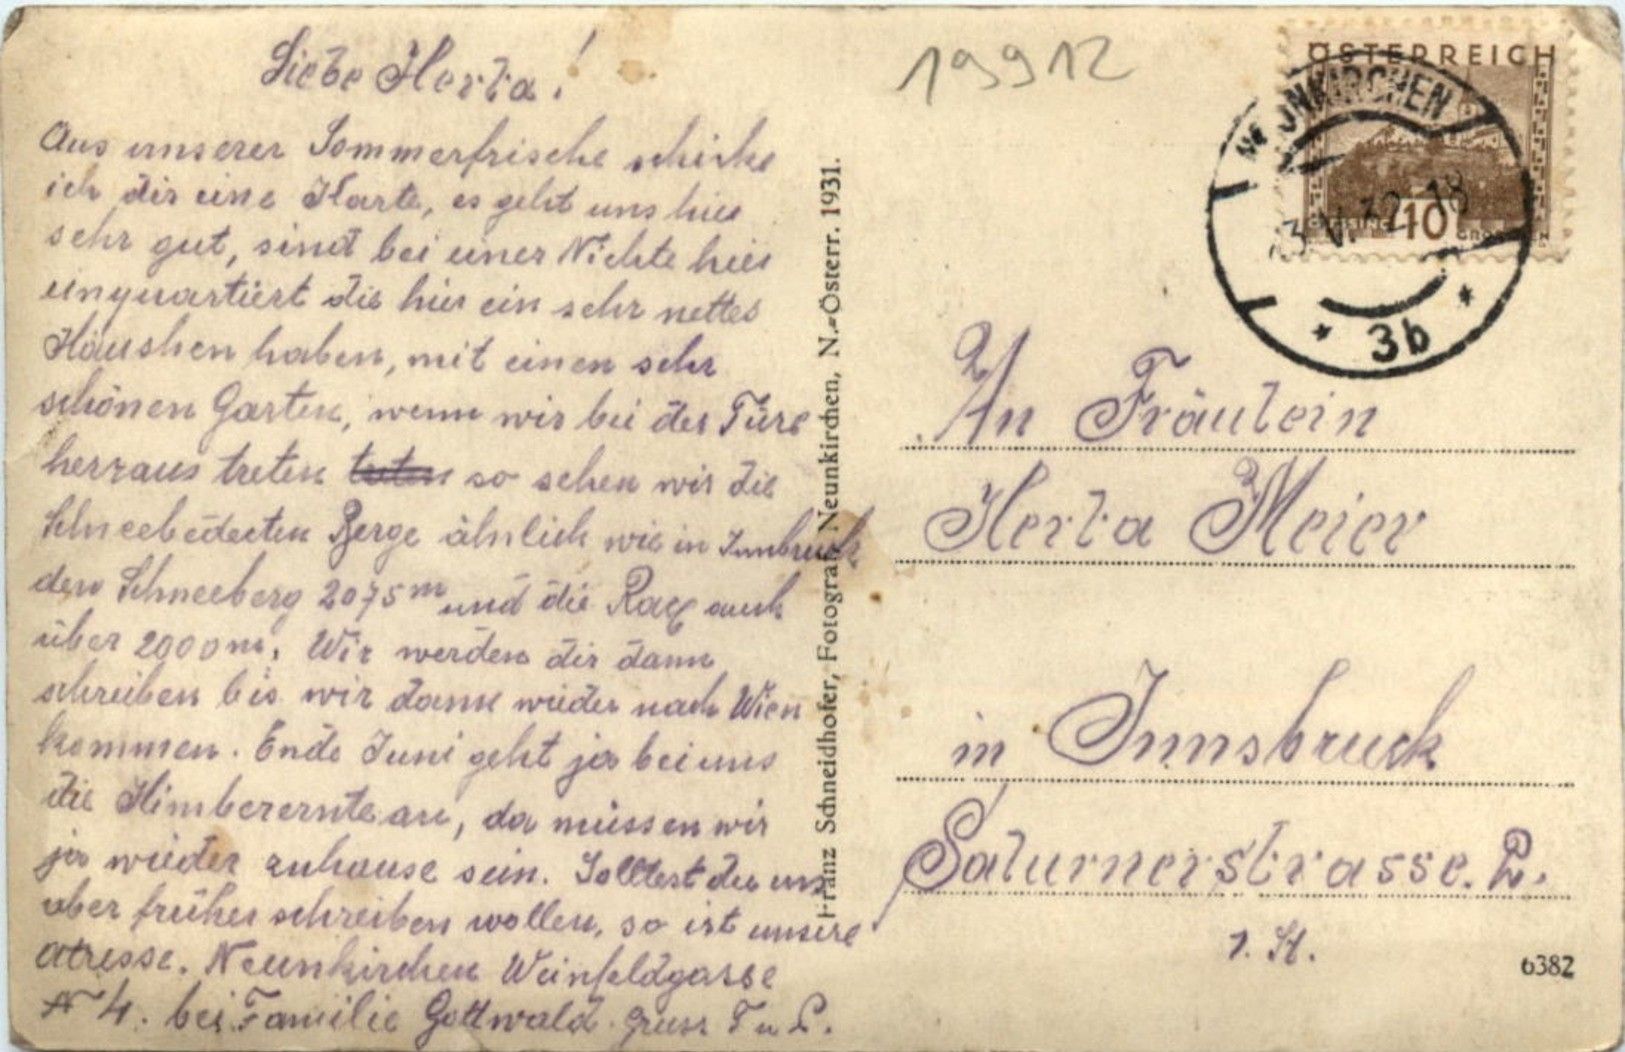 Liebe Herta!
Aus unserer Sommerfrische schicke
ich dir eine Karte, es geht uns hier
sehr gut, sind bei einer Nichte hier
einquartiert die hier ein sehr nettes
Häuschen haben, mit einen sehr
schönen Garten, wenn wir bei der Türe
herraus treten so sehen wir die
Schneebedecten Berge ähnlich wie in Innbruck
den Schneeberg 2075 m und die Rax auch
über 2000 m. Wir werden dir dann
schreiben bis wir dann wieder nach Wien
kommen. Ende Juni geht ja bei uns
die Himberernte an, da müssen wir
ja wieder zuhause sein. Solltest du uns
aber früher schreiben wollen, so ist unsere
Atresse. Neunkirchen Weinfeldgasse
N 4. bei Familie Gottwald. Gruss T u L.
Franz Schneidhofer, Fotograf, Neunkirchen, N.-Österr. 1931.
19912
ÖSTERREICH
NEUNKIRCHEN
3.VI.32 18
10
GROSCHEN
* 3b *
An Fräulein
Herta Meier
in Innsbruck
Saturnerstrasse. 2.
1. St.
6382